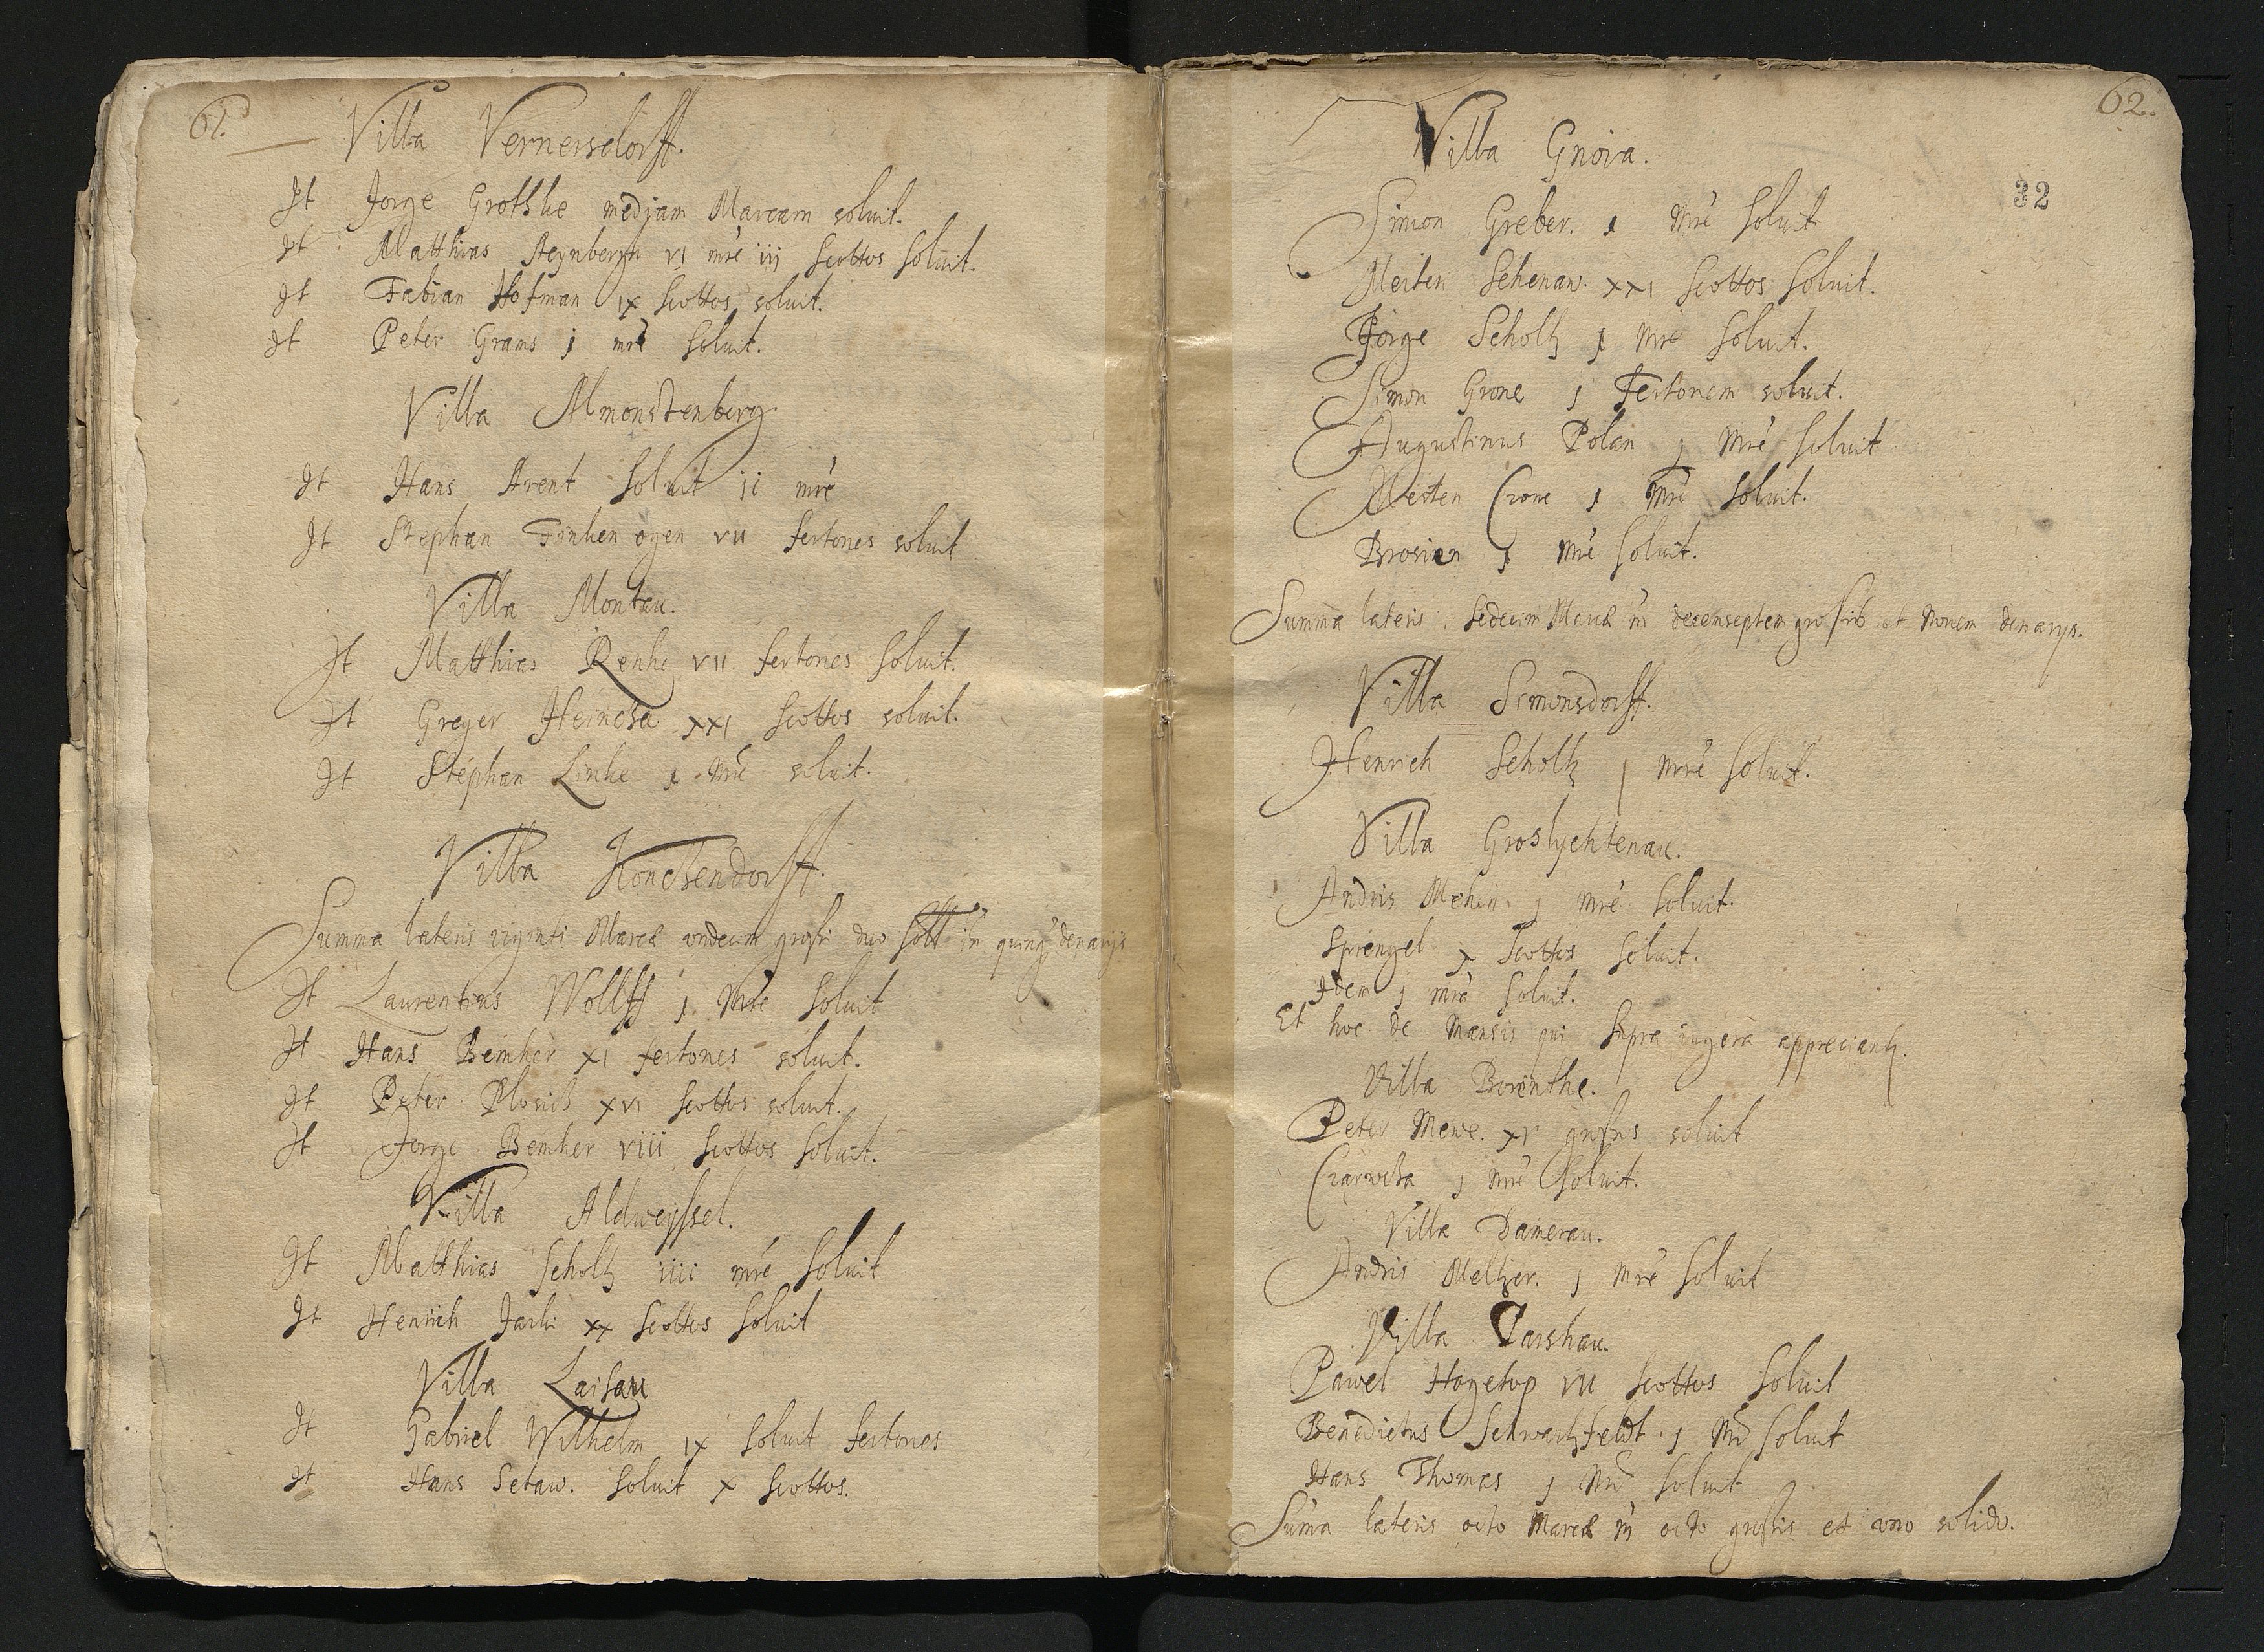 61.
Villa Vernersdorff.
It Jorge Grothke mediam Marcam soluit.
It Matthias Steynbergk vi mrc iij scottos soluit.
It Fabian Hofman ix scottos soluit.
It Peter Grams j mrc soluit.
Villa Almonstenberg.
It Hans Arent soluit ii mrc
It Stephan Finken ogen vii fertones soluit
Villa Montau.
It Matthias Renke vii fertones soluit.
It Greger Heincza xxi scottos soluit.
It Stephan Linke j mrc soluit.
Villa Konczendorff.
Summa lateris viginti Marcæ vndecim grossi duo soll in quinq denarijs
It Laurentius Wolff j mrc soluit
It Hans Bemher xi fertones soluit.
It Peter Plosich xvi scottos soluit.
It Jorge Bemher viii scottos soluit.
Villa Aldweyssel.
It Matthias Scholtz iiii mrc soluit
It Henrich Jacki xx scottos soluit
Villa Laisau
It Gabriel Wilhelm ix soluit fertones
It Hans Setaw. soluit x scottos.
62.
32
Villa Gnoia.
Simon Greber. j mrc soluit
Merten Schenaw. xxi scottos soluit.
Jorge Scholtz j mrc soluit.
Simon Grone j fertonem soluit.
Augustinus Polan j mrc soluit
Merten Crone j mrc soluit.
Brosien j mrc soluit.
Summa lateris. sedecim Marcæ in decemseptem grossis et nouem denarys.
Villa Simonsdorff.
Henrich Scholtz j mrc soluit.
Villa Groslychtenau.
Andris Mehin. j mrc soluit.
Sprengel x scottos soluit.
Idem j mrc soluit.
Et hoc de mansis qui supra iugera appreciantz.
Villa Borenthe.
Peter Mewe. xv grossus soluit
Czarwcza j mrc soluit.
Villa Damerau.
Andris Meltzer. j mrc soluit
Villa Carshau.
Pawel Hogetop vii scottos soluit
Benedictus Schwartzfeldt. j mrc soluit
Hans Thomas j mrc soluit
Suma lateris octo Marcæ in octo grossis et vno solido.